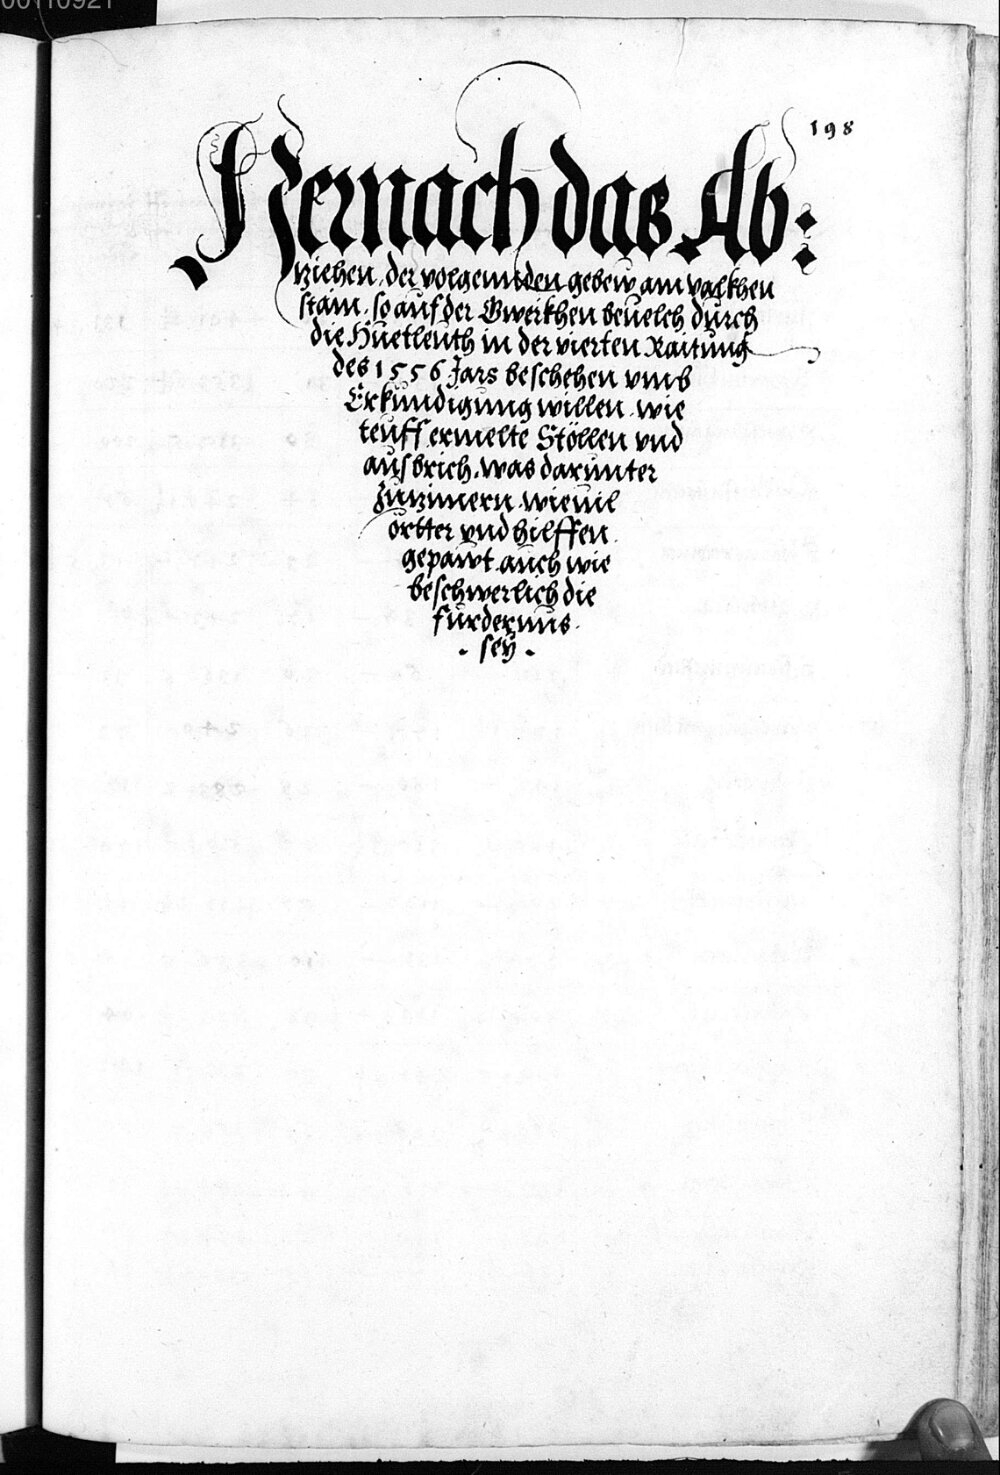 00110921
198
Hernach das Ab:
ziehen, der vorgemelden gebew am valkhen
stain. so auf der Gwerkhen beuelch durch
die Huetleuth in der vierten Raitung
des 1556 Jars beschehen vmb
Erkundigung willen. wie
teuff ermelte Stöllen vnd
ausbrich. was darunter
zuzimern. wieuil
örtter vnd hilffen.
gepawt. auch wie
beschwerlich die
furdernus.
. seÿ .